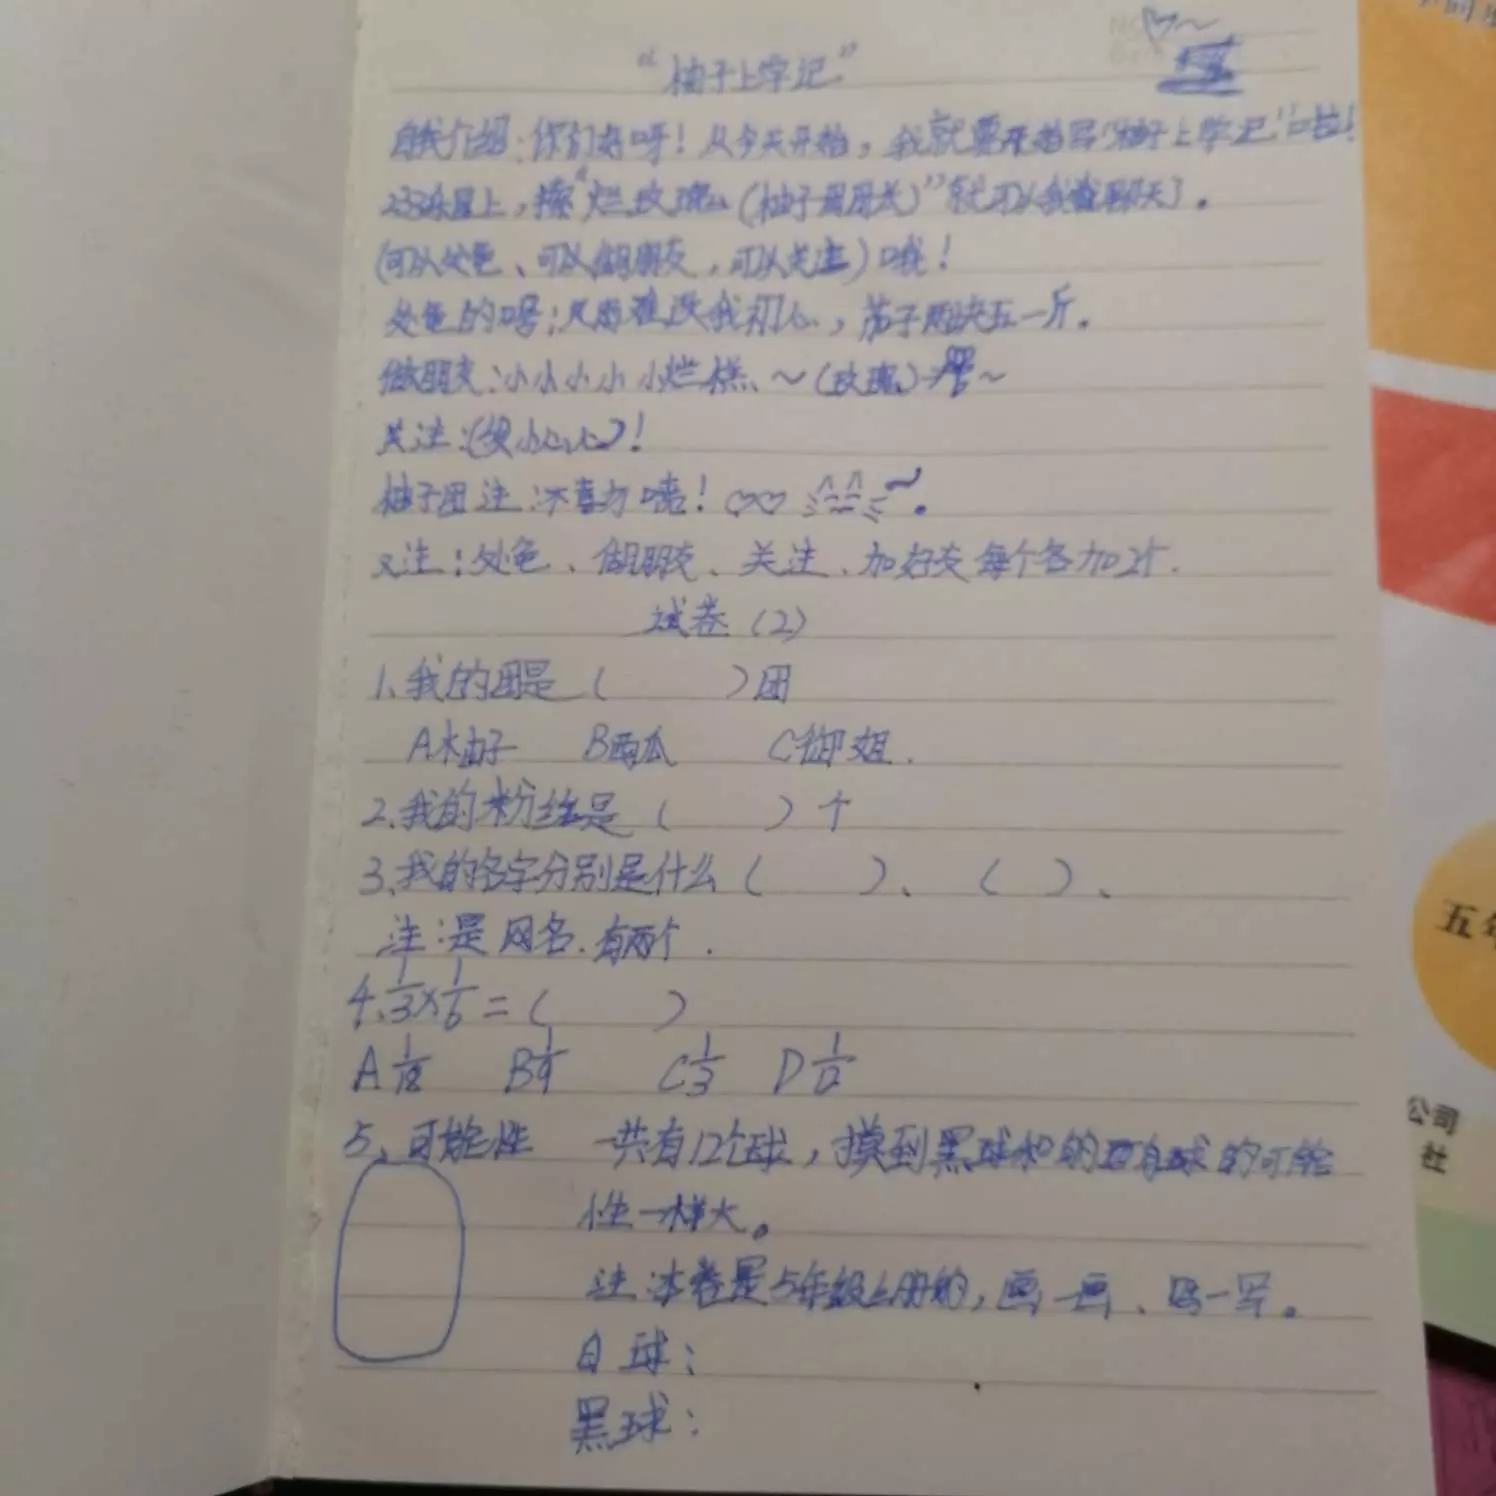 “柚子上学记”
自我介绍：你们好呀！从今天开始，我就要开始写“柚子上学记”啦！
2330乐园上，搜“烂玫瑰(柚子团团长)”就可以我聊天了。
(可以处鱼、可以做朋友，可以关注)哦！
处鱼的嘻：风雨难改我初心，茄子两块五一斤。
做朋友：小小小小小烂糕、～(玫瑰)～
关注：(绿小心心)！
柚子团注：不喜勿喷！♡♡
又注：处鱼、做朋友、关注、加好友每个各加2个.
试卷(2)
1、我的团是(　　)团
A柚子　B西瓜　C御姐.
2.我的粉丝是(　　)个
3、我的名字分别是什么(　　)、(　)、
注：是网名.有两个.
4、1/3×1/6=(　　)
A 1/18　B 1/9　C 1/3　D 1/12
5、可能性　一共有12个球，摸到黑球和白球的可能
性一样大。
注：本卷是5年级上册的，画一画、写一写。
白球：
黑球：
五年
公司
社